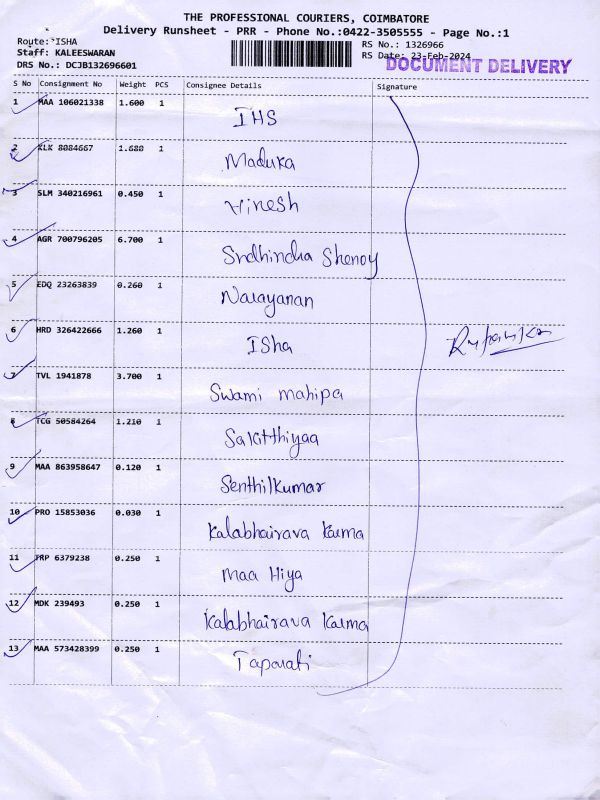 THE PROFESSIONAL COURIERS, COIMBATORE
Delivery Runsheet - PRR - Phone No.:0422-3505555 - Page No.:1
Route: ISHA
Staff: KALEESWARAN
DRS No.: DCJB132696601
RS No.: 1326966
RS Date: 23-Feb-2024
DOCUMENT DELIVERY
S No Consignment No Weight PCS Consignee Details Signature
1 MAA 106021338 1.600 1 IHS
2 KLK 8084667 1.680 1 Maduka
3 SLM 340216961 0.450 1 Vinesh
4 AGR 700796205 6.700 1 Srdhindha Shenoy
5 EDQ 23263839 0.260 1 Narayanan
6 HRD 326422666 1.260 1 ISha
7 TVL 1941878 3.700 1 Swami mahipa
8 TCG 50584264 1.210 1 Sakitthiyaa
9 MAA 863958647 0.120 1 Senthilkumar
10 PRO 15853036 0.030 1 Kalabhairava Karma
11 TRP 6379238 0.250 1 maa Hiya
12 MDK 239493 0.250 1 Kalabhairava Karma
13 MAA 573428399 0.250 1